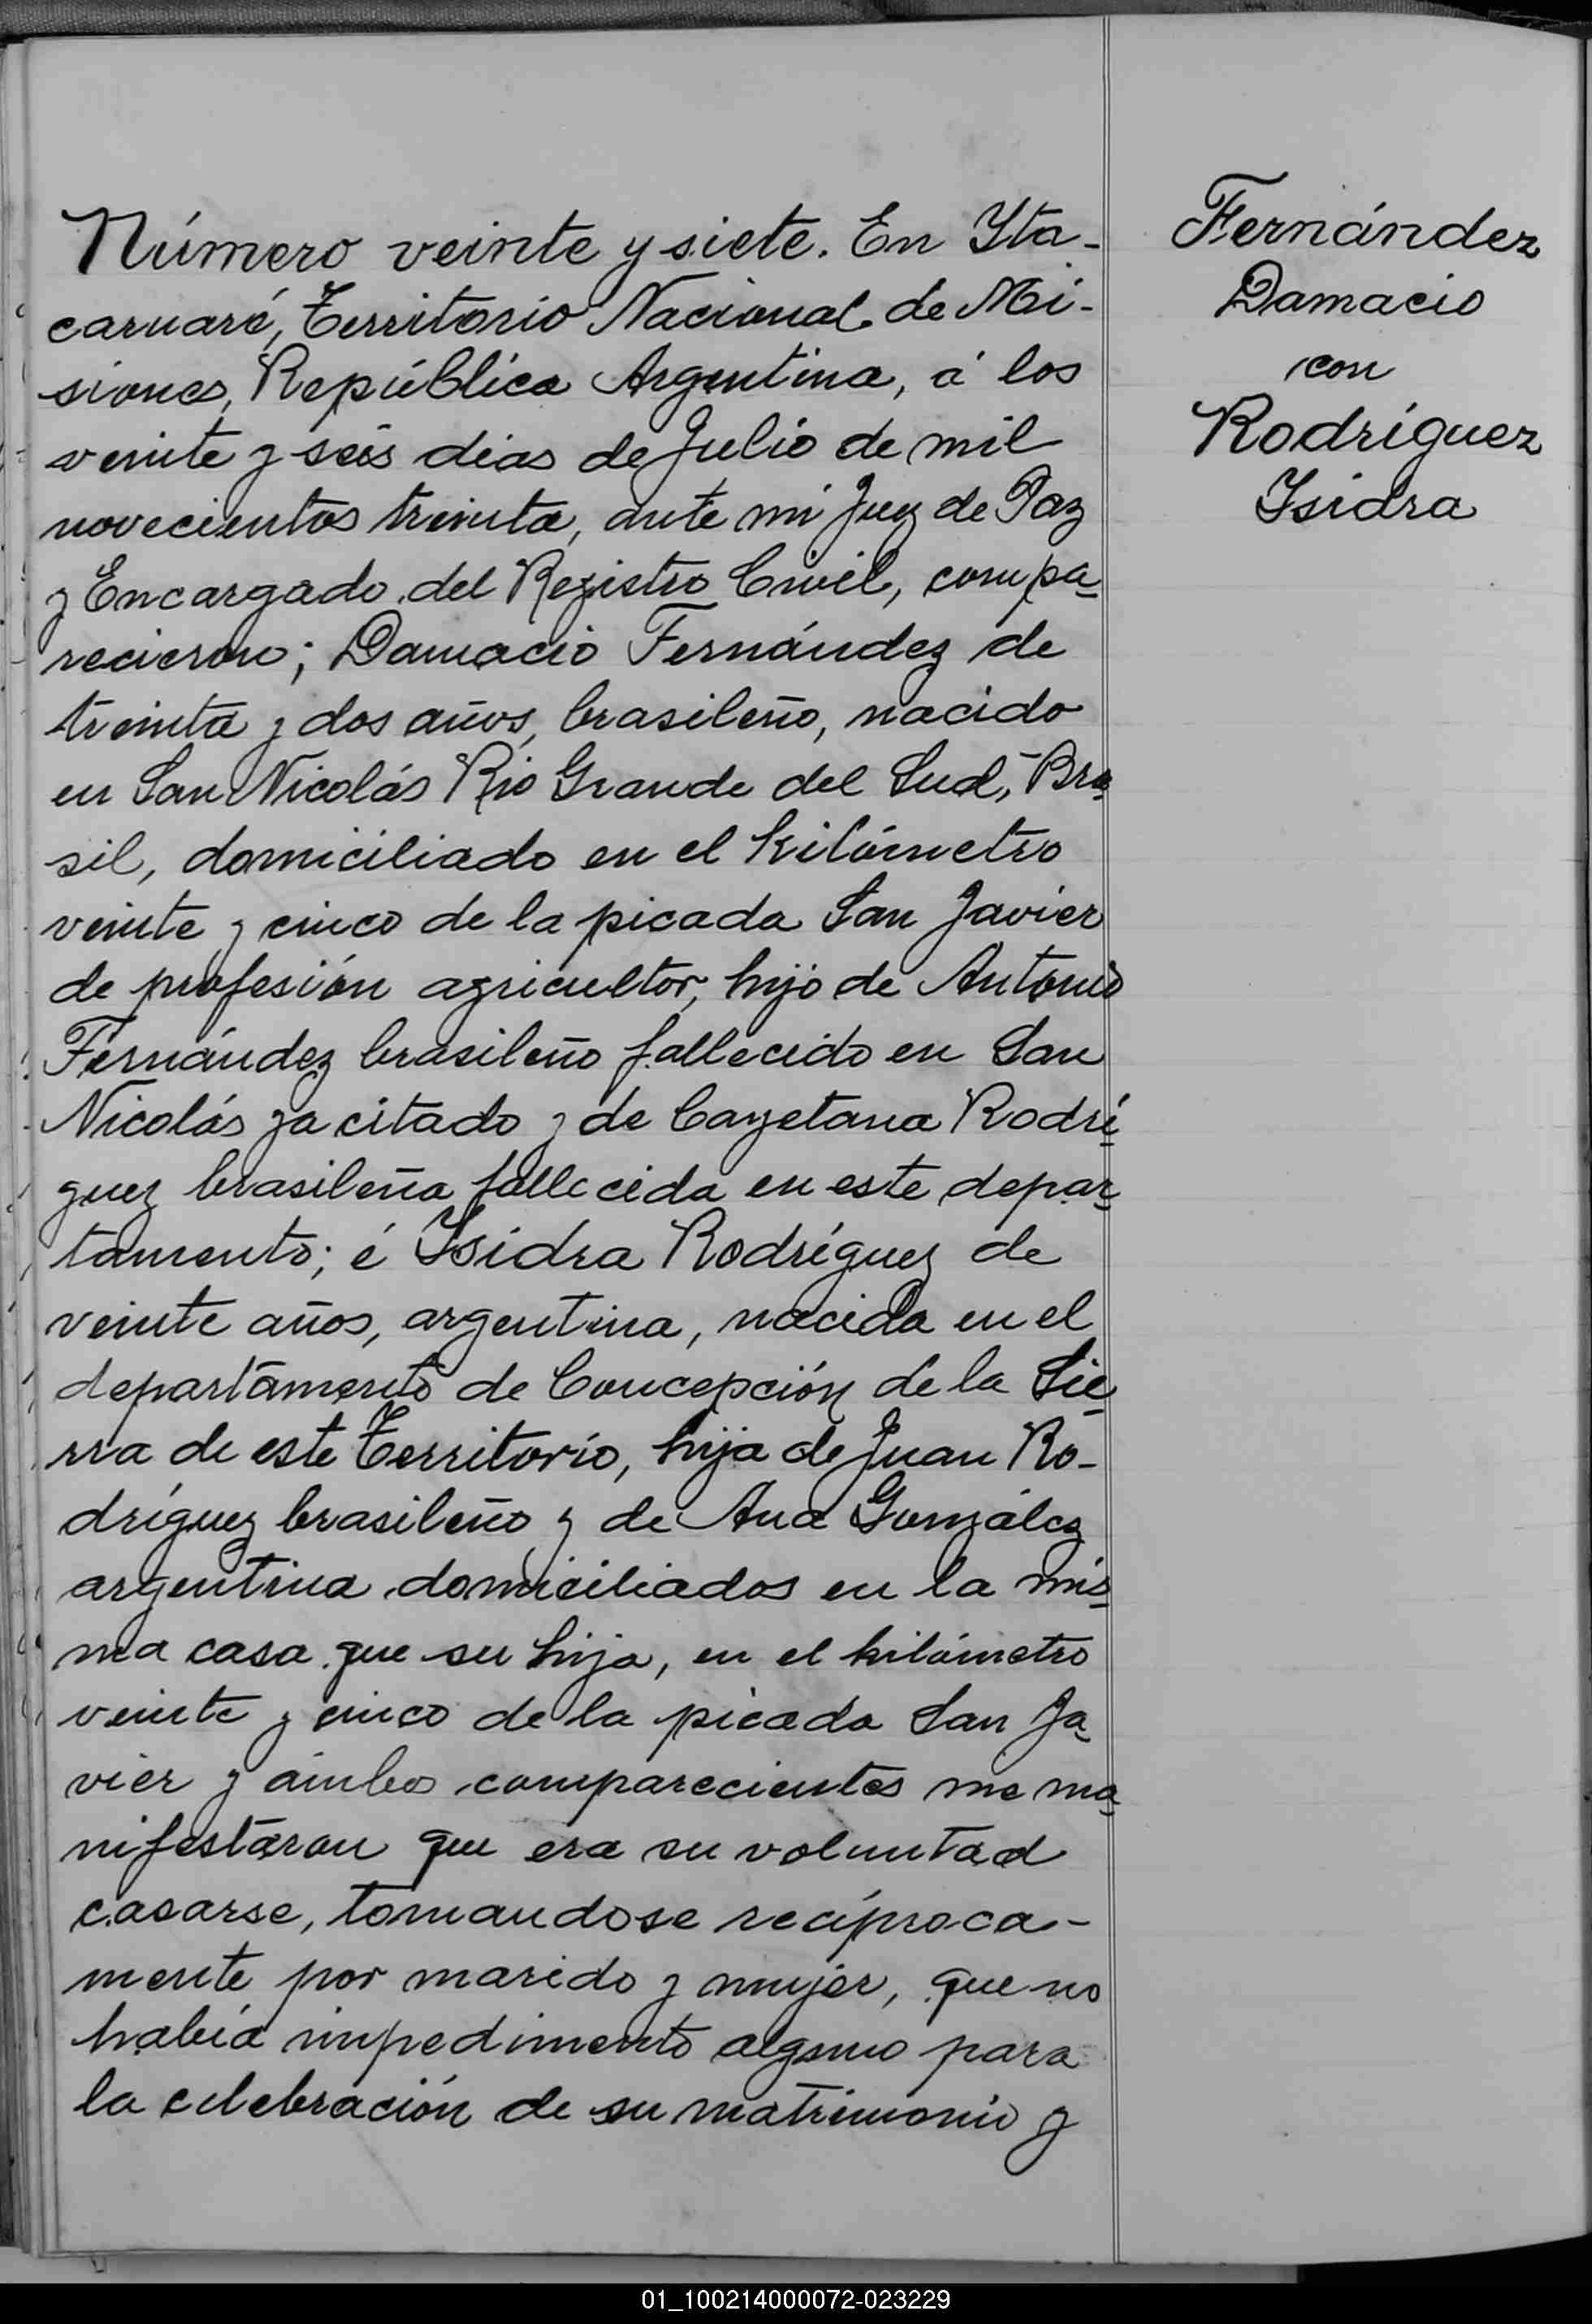 Número veinte y siete. En Yta-
caruaré, Territorio Nacional de Mi-
siones, República Argentina, á los
veinte y seis dias de Julio de mil
novecientos treinta, ante mi Juez de Paz
y Encargado del Registro Civil, compa-
recieron; Damacio Fernández de
treinta y dos años, brasileño, nacido
en San Nicolás Rio Grande del Sud, Bra-
sil, domiciliado en el kilómetro
veinte y cinco de la picada San Javier
de profesión agricultor, hijo de Antonio
Fernández brasileño fallecido en San
Nicolás ya citado y de Cayetana Rodrí-
guez brasileña fallecida en este depar-
tamento; é Isidra Rodríguez de
veinte años, argentina, nacida en el
departamento de Concepción de la Sie-
rra de este Territorio, hija de Juan Ro-
dríguez brasileño y de Ana González
argentina domiciliados en la mis-
ma casa que su hija, en el kilómetro
veinte y cinco de la picada San Ja-
vier y ámbos comparecientes me ma-
nifestaron que era su voluntad
casarse, tomandose recíproca-
mente por marido y mujer, que no
había impedimento alguno para
la celebración de su matrimonio y
Fernández
Damacio
con
Rodríguez
Isidra
01_100214000072-023229